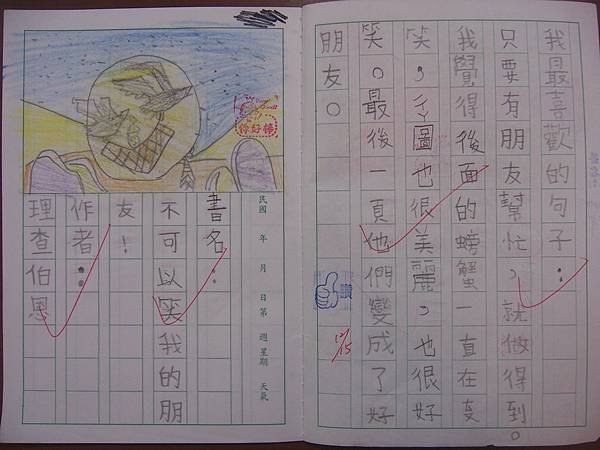 你好棒
民國 年 月 日 第 週 星期 天氣
書名：
不可以笑我的朋
友！
作者：
理查伯恩
我最喜歡的句子：
只要有朋友幫忙，就做得到。
我覺得後面的螃蟹一直在
笑，圖也很美麗，也很好
笑。最後一頁他們變成了好
朋友。
讚
12/15